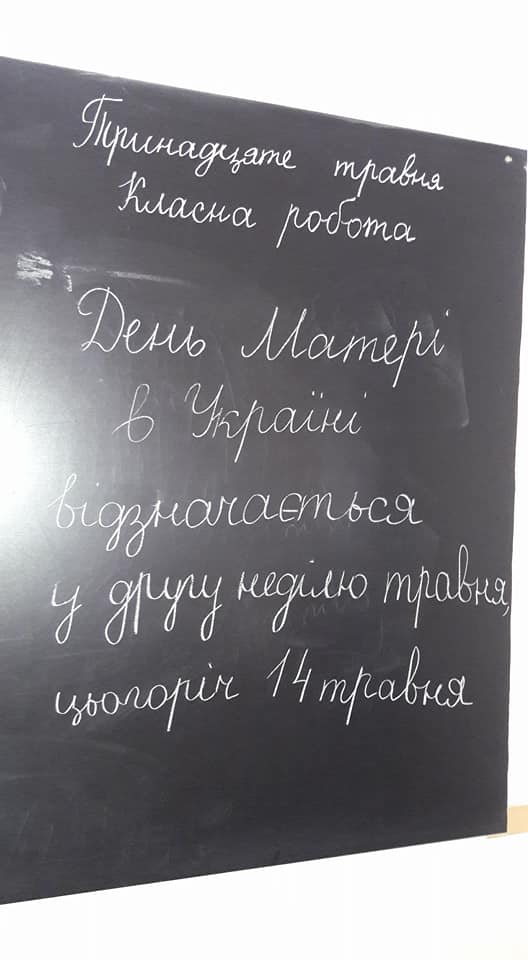 Тринадцяте травня
Класна робота
День Матері
в Україні
відзначається
у другу неділю травня,
цьогоріч 14 травня